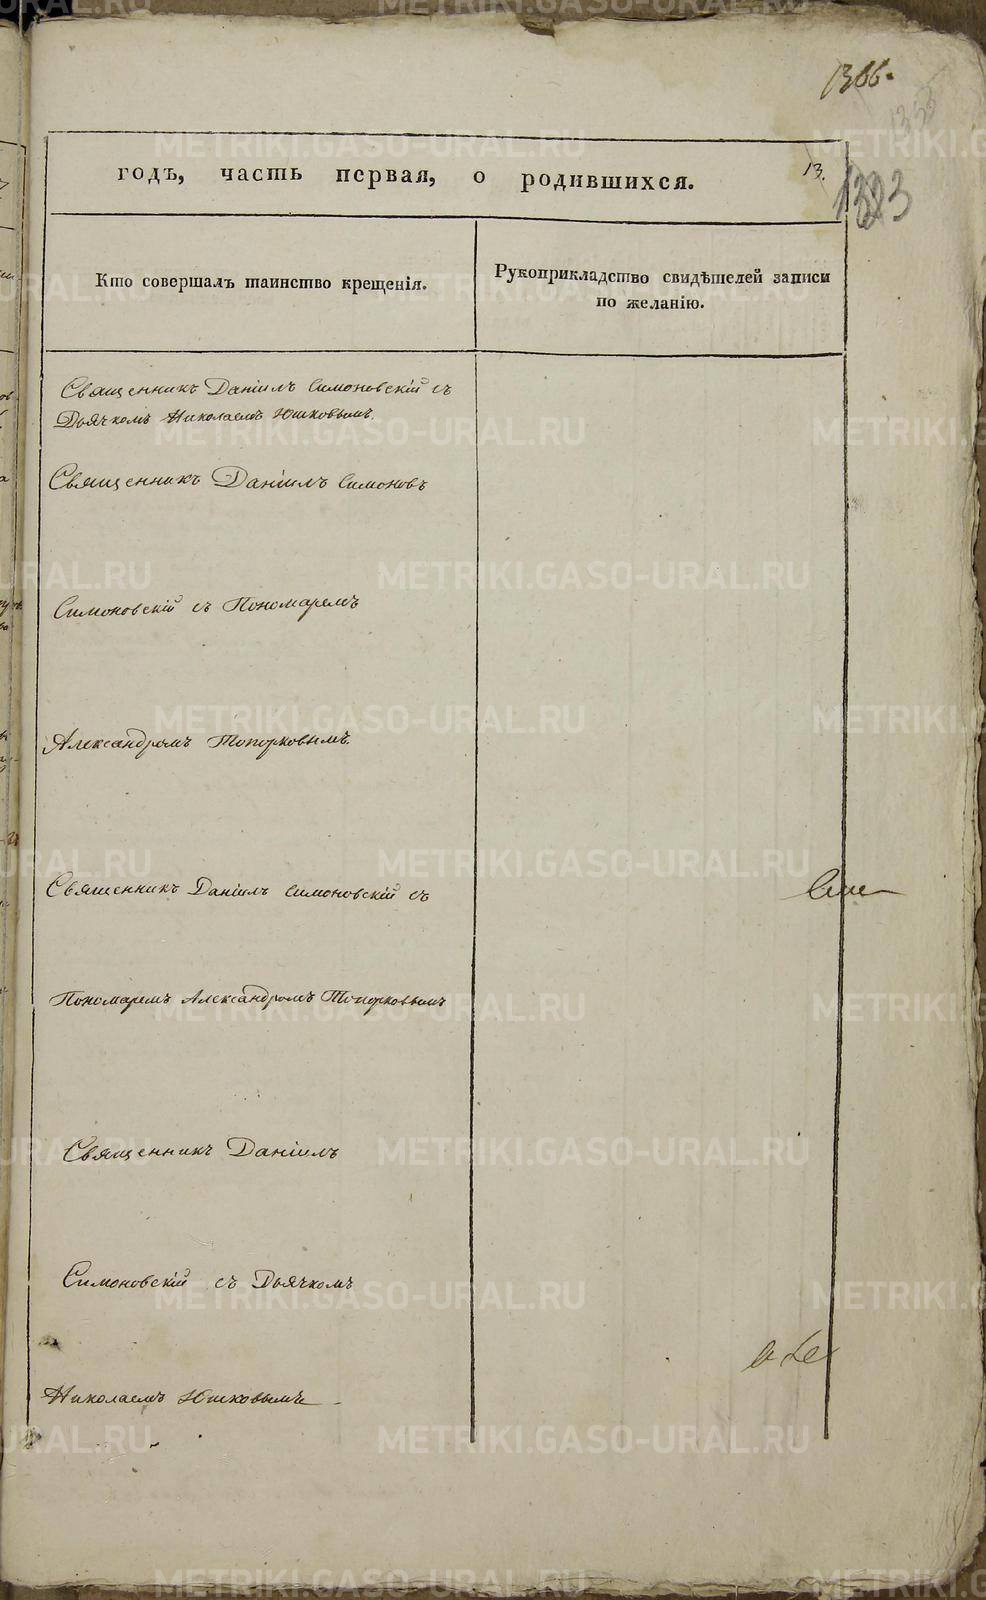 1366.
13.
1323
годъ, часть первая, о родившихся.
Кто совершалъ таинство крещенія.
Рукоприкладство свидѣтелей записи
по желанію.
Священникъ Даніилъ Симоновскій съ
Дьячкомъ Николаемъ Юшковымъ.
Священникъ Даніилъ Симоновъ
Симоновскій съ Пономаремъ
Александромъ Топорковымъ.
Священникъ Даніилъ Симоновскій съ
Пономаремъ Александромъ Топорковымъ
Священникъ Даніилъ
Симоновскій съ Дьячкомъ
Николаемъ Юшковымъ
METRIKI.GASO-URAL.RU